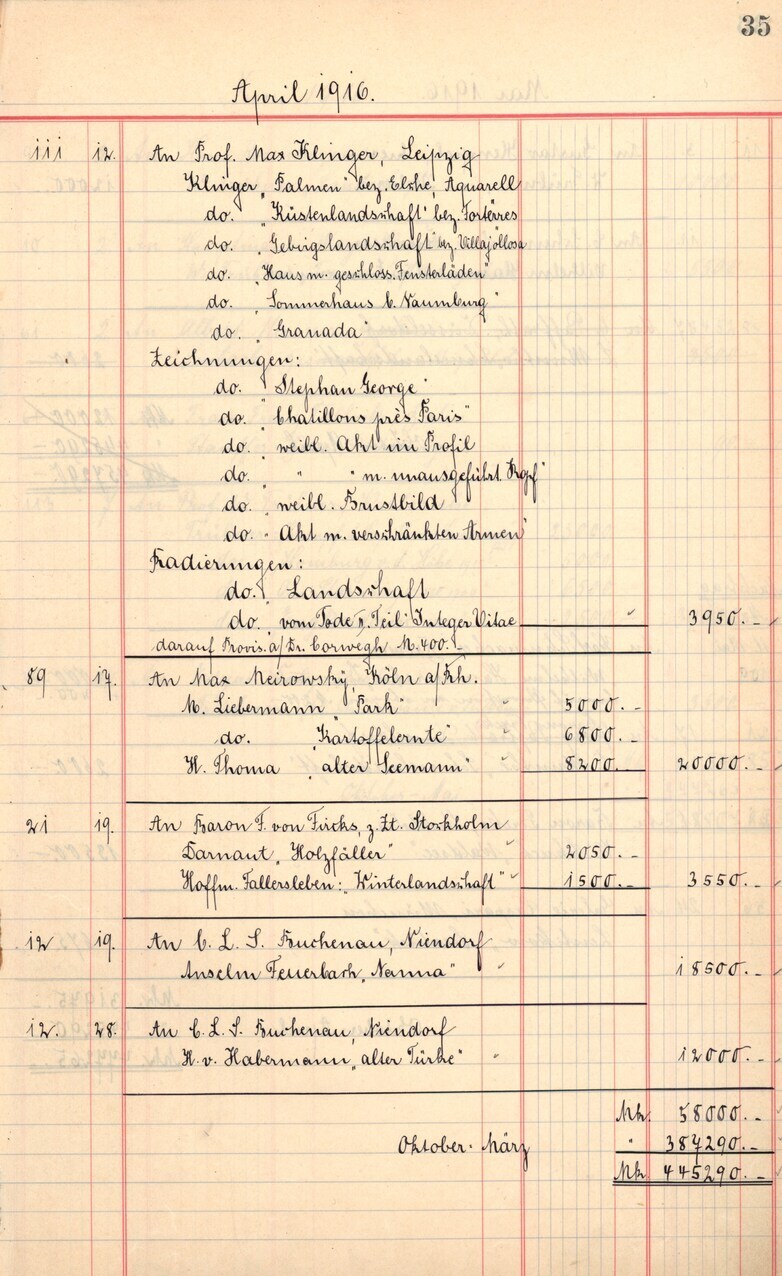 35
April 1916.
111 12. An Prof. Max Klinger, Leipzig
Klinger „Palmen" bez. Elche, Aquarell
do. „Küstenlandschaft" bez. Torterres
do. „Gebirgslandschaft" bez. Villajollosa
do. „Haus m. geschloss. Fensterläden"
do. „Sommerhaus b. Naumburg"
do. „Granada"
Zeichnungen:
do. „Stephan George"
do. „Chatillons près Paris"
do. „weibl. Akt im Profil
do. „ " " m. unausgeführt. Kopf"
do. „weibl. Brustbild
do. „Akt m. verschränkten Armen"
Radierungen:
do. „Landschaft
do. „vom Tode II. Teil" Integer Vitae 3950.-
darauf Provis. a/ Dr. Corwegh M. 400.-
89 17. An Max Meirowsky, Köln a/Rh.
M. Liebermann „Park" 5000.-
do. „Kartoffelernte" 6800.-
H. Thoma „alter Seemann" 8200.- 20000.-
21 19. An Baron F. von Fircks, z. Zt. Stockholm
Darnaut „Holzfäller" 2050.-
Hoffm. Fallersleben: „Winterlandschaft" 1500.- 3550.-
12 19. An C. L. S. Buchenau, Niendorf
Anselm Feuerbach „Nanna" 18500.-
12. 28. An C. L. S. Buchenau, Niendorf
H. v. Habermann „alter Türke" 12000.-
Mk. 58000.-
Oktober - März " 387290.-
Mk 445290.-